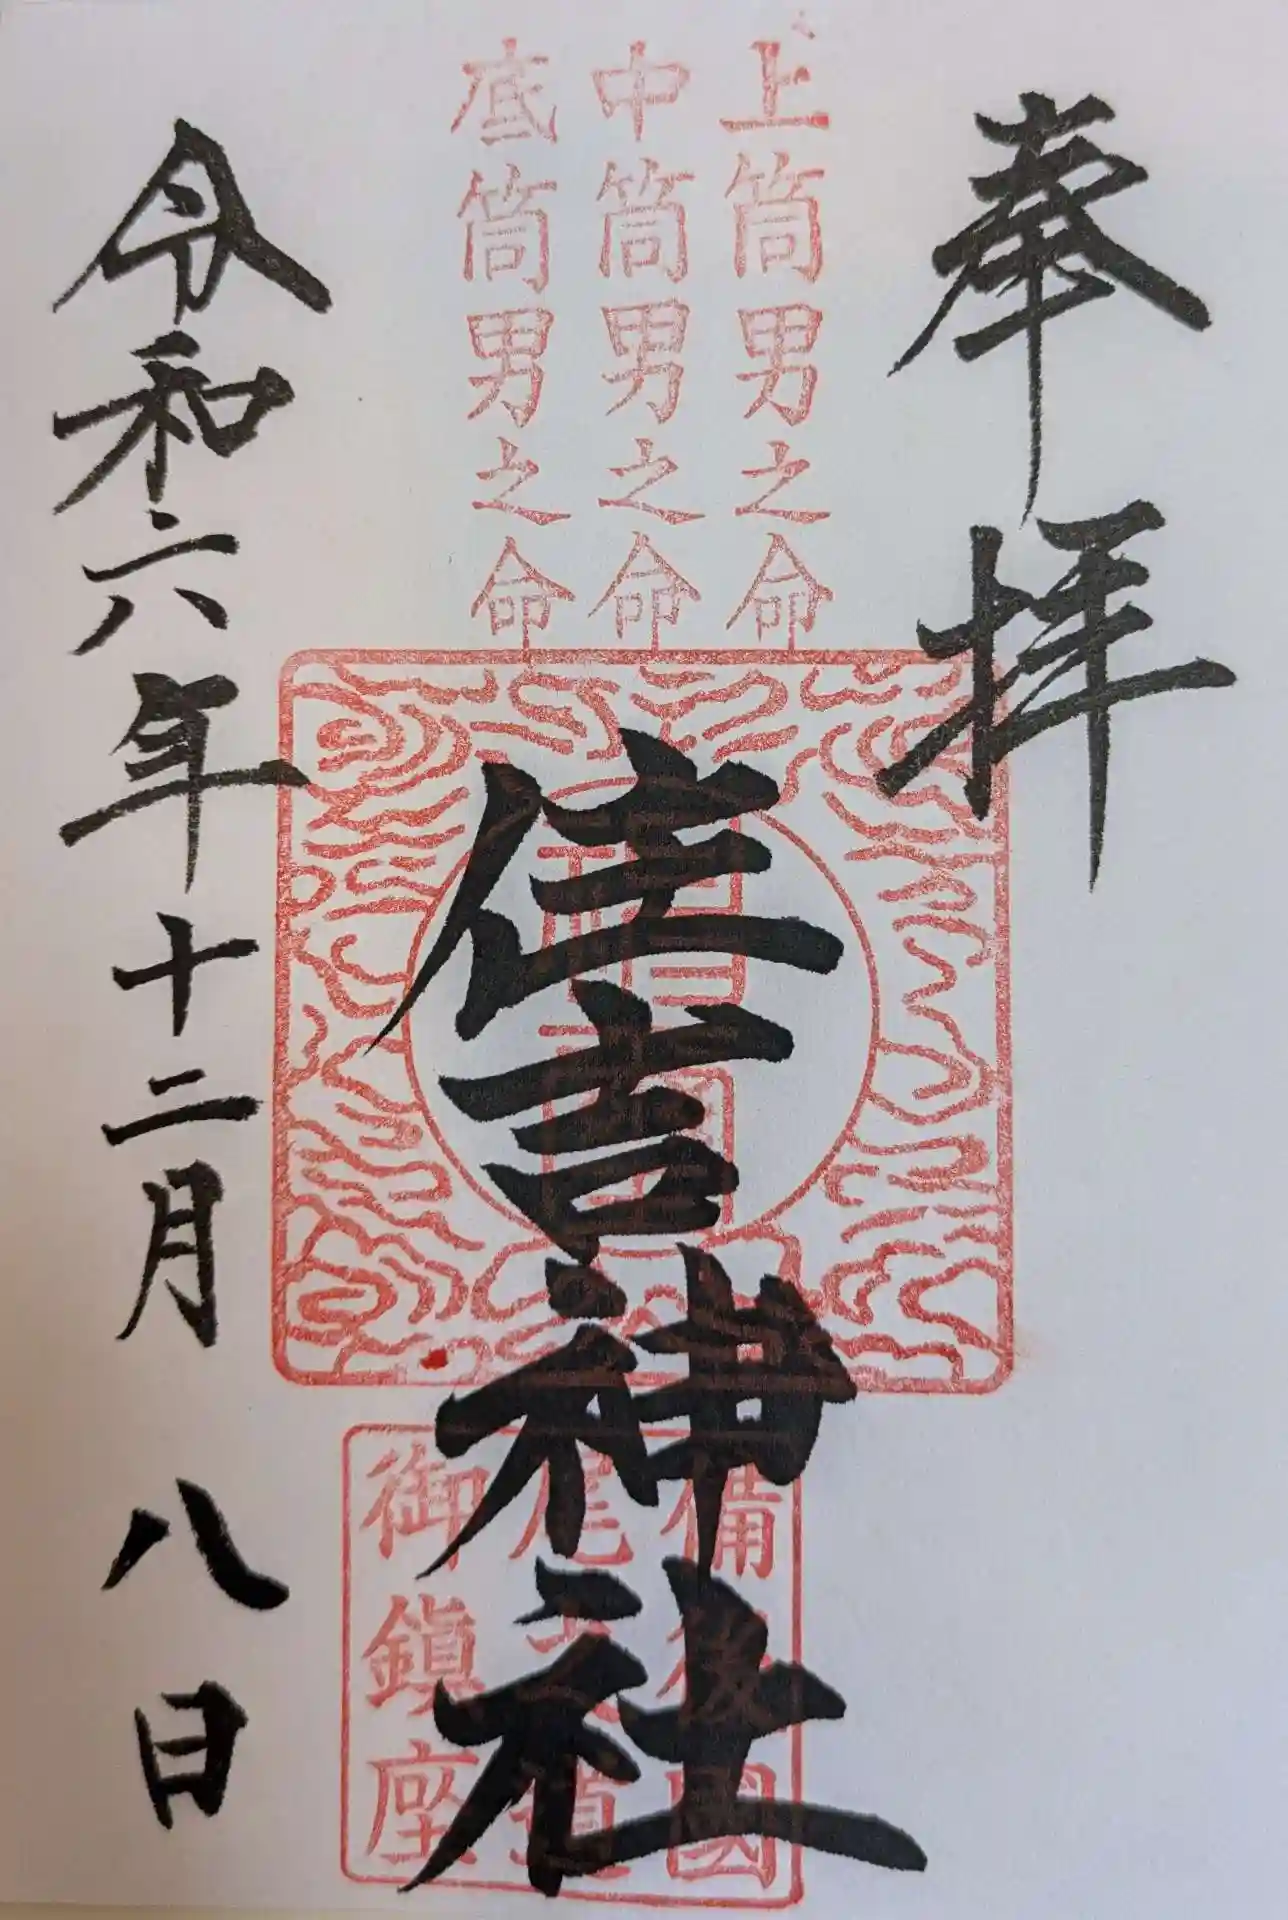 奉拝
上筒男之命
中筒男之命
底筒男之命
住吉神社
備後國
尾之道
御鎮座
令和六年十二月八日